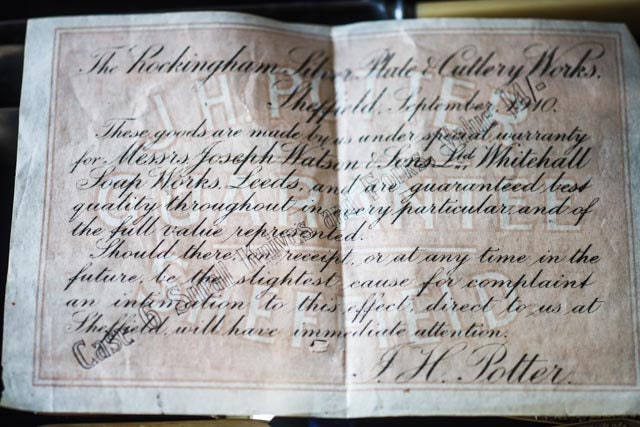 The Rockingham Silver Plate & Cutlery Works.
Sheffield, September, 1910.
These goods are made by us under special warranty
for Messrs. Joseph Watson & Sons, Ltd., Whitehall
Soap Works, Leeds, and are guaranteed best
quality throughout in every particular, and of
the full value represented.
Should there, on receipt, or at any time in the
future, be the slightest cause for complaint
an intimation to this effect, direct to us at
Sheffield, will have immediate attention.
J. H. Potter.
J. H. POTTER'S
GUARANTEE
Case 6 Small Knives and Forks